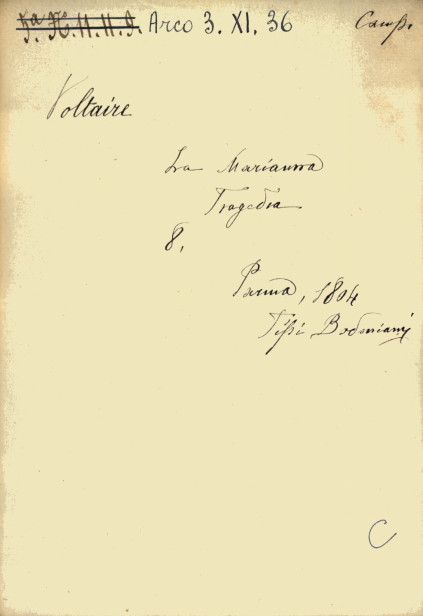 Arco 3. XI, 36
Camp.
Voltaire
La Marianna
Tragedia
8,
Parma, 1804
Tipi Bodoniani
C